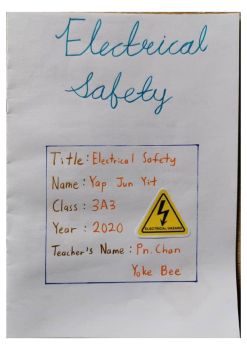 Electrical
Safety
Title: Electrical Safety
Name: Yap Jun Yit
Class: 3A3
Year: 2020
ELECTRICAL HAZARD
Teacher's Name: Pn. Chan
Yoke Bee